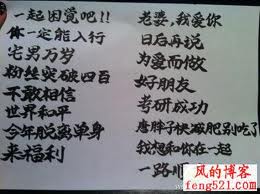 一起困觉吧!!
你一定能入行
宅男万岁
粉丝突破四百
不敢相信
世界和平
今年脱离单身
来福利
老婆,我爱你
日后再说
为爱而做
好朋友
考研成功
唐胖子快减肥别吃了
我想和你在一起
一路顺
风的博客
feng521.com